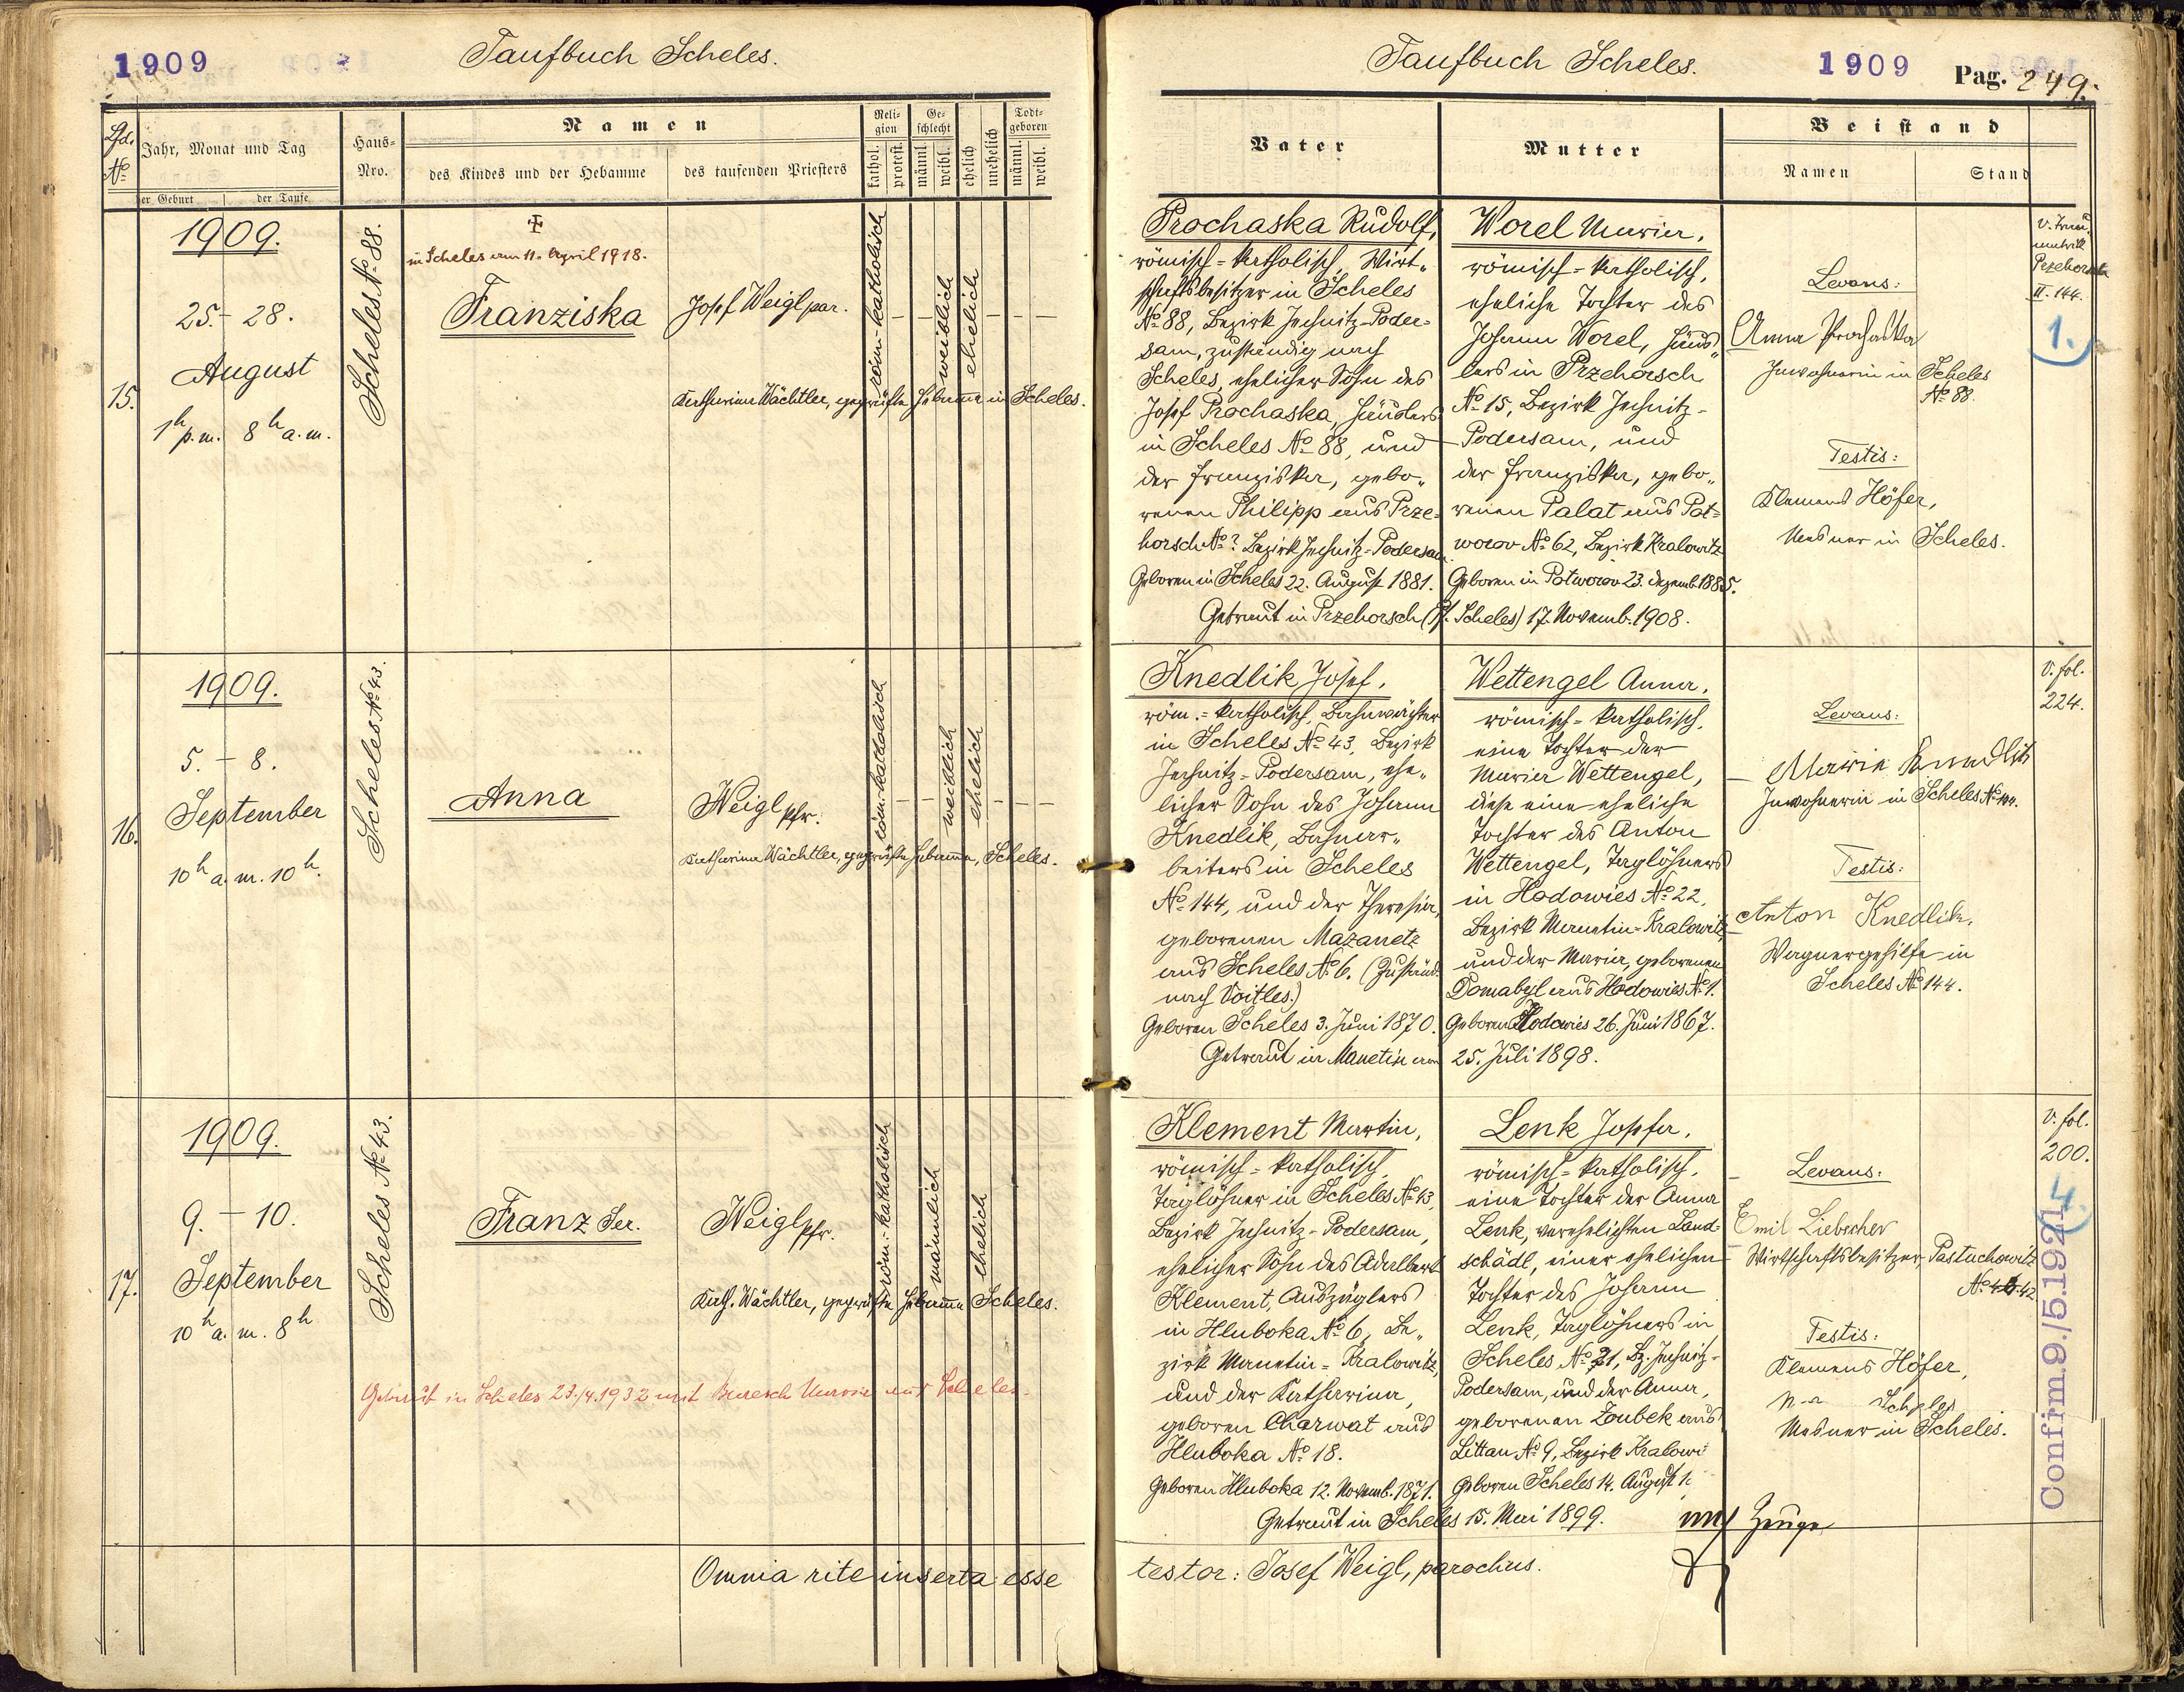 1909
Taufbuch Scheles.
Lfd. No
Jahr, Monat und Tag
der Geburt
der Taufe
Haus-Nro.
Namen
des Kindes und der Hebamme
des taufenden Priesters
Religion
kathol.
protest.
Geschlecht
männl.
weibl.
ehelich
unehelich
Todtgeboren
männl.
weibl.
15.
1909.
25. - 28.
August
1h p.m. 8h a.m.
Scheles No 88.
in Scheles am 11. April 1918.
Franziska
Josef Weigl par.
Katharina Wächtler, geprüfte Hebamme in Scheles.
röm.-katholisch
weiblich
ehelich
16.
1909.
5. - 8.
September
10h a.m. 10h.
Scheles No 43.
Anna
Weigl pfr.
Katharina Wächtler, geprüfte Hebamme, Scheles.
röm.-katholisch
weiblich
ehelich
17.
1909.
9. - 10.
September
10h a.m. 8h
Scheles No 43.
Franz Ser.
Weigl pfr.
Kath. Wächtler, geprüfte Hebamme Scheles.
röm.-katholisch
männlich
ehelich
Getraut in Scheles 23./4.1932 mit Maria aus Scheles.
Omnia rite inserta esse
Taufbuch Scheles.
1909
Pag. 249.
Vater
Mutter
Beistand
Namen
Stand
Prochaska Rudolf,
römisch-katholisch, Wirt-
schaftsbesitzer in Scheles
No 88, Bezirk Jechnitz-Poder-
sam, zuständig nach
Scheles, ehelicher Sohn des
Josef Prochaska, Häuslers
in Scheles No 88, und
der Franziska, gebo-
renen Philipp aus Prze-
horsch No ? Bezirk Jechnitz-Podersam.
Geboren in Scheles 22. August 1881.
Worel Maria,
römisch-katholisch,
eheliche Tochter des
Johann Worel, Häus-
lers in Przehorsch
No 15, Bezirk Jechnitz-
Podersam, und
der Franziska, gebo-
renen Palat aus Pot-
worov No 62, Bezirk Kralowitz
Geboren in Potworov 23. Dezemb. 1885.
Getraut in Przehorsch (Pf. Scheles) 17. Novemb. 1908.
Levans:
Anna Prochaska
Inwohnerin in Scheles
No 88.
Testis:
Klemens Höfer,
Mesner in Scheles.
Przehorsch
II. 144.
1.
Knedlik Josef,
röm.-katholisch, Bahnwächter
in Scheles No 43, Bezirk
Jechnitz-Podersam, ehe-
licher Sohn des Johann
Knedlik, Bahnar-
beiters in Scheles
No 144, und der Theresia,
geborenen Mazanetz
aus Scheles No 6. (Zuständ.
nach Voitles.)
Geboren Scheles 3. Juni 1870.
Wettengel Anna,
römisch-katholisch,
eine Tochter der
Maria Wettengel,
diese eine eheliche
Tochter des Anton
Wettengel, Taglöhners
in Hodowies No 22,
Bezirk Manetin-Kralowitz,
und der Maria, geborenen
Domabyl aus Hodowies No 1.
Geboren Hodowies 26. Juni 1867.
Getraut in Manetin am 25. Juli 1898.
Levans:
Marie Knedlik
Inwohnerin in Scheles No 144.
Testis:
Anton Knedlik,
Wagnergehilfe in
Scheles No 144.
V. fol.
224.
Klement Martin,
römisch-katholisch,
Taglöhner in Scheles No 43,
Bezirk Jechnitz-Podersam,
ehelicher Sohn des Adalbert
Klement, Auszüglers
in Hluboka No 6, Be-
zirk Manetin-Kralowitz,
und der Katharina,
geboren Charwat aus
Hluboka No 18.
Geboren Hluboka 12. Novemb. 1871.
Lenk Josefa,
römisch-katholisch,
eine Tochter der Anna
Lenk, verehelichten Land-
schädl, einer ehelichen
Tochter des Johann
Lenk, Taglöhners in
Scheles No 21, Bz. Jechnitz-
Podersam, und der Anna,
geborenen Zoubek aus
Littau No 9, Bezirk Kralowi
Geboren Scheles 14. August 1
Getraut in Scheles 15. Mai 1899.
Levans:
Emil Liebscher
Wirtschaftsbesitzer, Pastuchowitz
No 42
Testis:
Klemens Höfer,
Mesner in Scheles.
Zeuge
V. fol.
200.
4.
Confirm. 9./5.1921
testor: Josef Weigl, parochus.